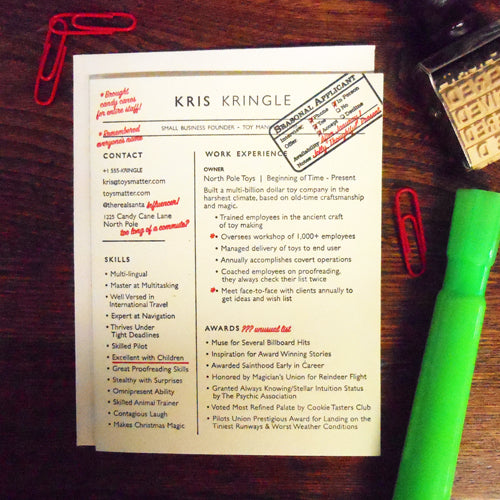 * Brought
candy canes
for entire staff!
* Remembered
everyone's name
KRIS KRINGLE
SMALL BUSINESS FOUNDER • TOY MAN
SEASONAL APPLICANT
Interview:
Phone
In Person
Tub
No
Offer
Accept
Decline
Availability:
Notes: Jolly, Thoughtful, Present
CONTACT
+1 555-KRINGLE
kris@toysmatter.com
toysmatter.com
@therealsanta influencer!
1225 Candy Cane Lane
North Pole
too long of a commute?
SKILLS
• Multi-lingual
• Master at Multitasking
• Well Versed in
International Travel
• Expert at Navigation
• Thrives Under
Tight Deadlines
• Skilled Pilot
• Excellent with Children
• Great Proofreading Skills
• Stealthy with Surprises
• Omnipresent Ability
• Skilled Animal Trainer
• Contagious Laugh
• Makes Christmas Magic
WORK EXPERIENCE
OWNER
North Pole Toys | Beginning of Time - Present
Built a multi-billion dollar toy company in the
harshest climate, based on old-time craftsmanship
and magic.
• Trained employees in the ancient craft
of toy making
* Oversees workshop of 1,000+ employees
• Managed delivery of toys to end user
• Annually accomplishes covert operations
• Coached employees on proofreading,
they always check their list twice
* Meet face-to-face with clients annually to
get ideas and wish list
AWARDS ??? unusual list
• Muse for Several Billboard Hits
• Inspiration for Award Winning Stories
• Awarded Sainthood Early in Career
• Honored by Magician's Union for Reindeer Flight
• Granted Always Knowing/Stellar Intuition Status
by The Psychic Association
• Voted Most Refined Palate by Cookie Tasters Club
• Pilots Union Prestigious Award for Landing on the
Tiniest Runways & Worst Weather Conditions